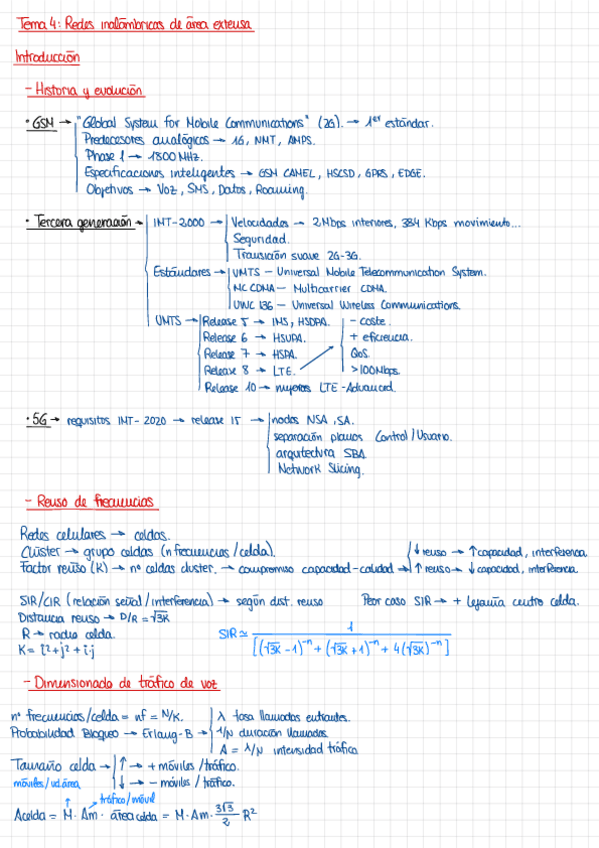 Tema 4: Redes inalámbricas de área extensa
Introducción
- Historia y evolución
· GSM → "Global System for Mobile Communications" (2G). → 1er estándar.
Predecesores analógicos → 1G, NMT, AMPS.
Phase 1 → 1800 MHz.
Especificaciones inteligentes → GSM CAMEL, HSCSD, GPRS, EDGE.
Objetivos → Voz, SMS, Datos, Roaming.
· Tercera generación → IMT-2000 → Velocidades → 2Mbps interiores, 384 Kbps movimiento...
Seguridad.
Transición suave 2G-3G.
Estándares → UMTS - Universal Mobile Telecommunication System.
MC CDMA - Multicarrier CDMA.
UWC 136 - Universal Wireless Communications.
UMTS → Release 5 → IMS, HSDPA. - coste.
Release 6 → HSUPA. + eficiencia.
Release 7 → HSPA. QoS.
Release 8 → LTE. >100Mbps.
Release 10 → mejoras LTE-Advanced.
· 5G → requisitos IMT-2020 → release 15 → nodos NSA, SA.
separación planos Control/Usuario.
arquitectura SBA.
Network Slicing.
- Reuso de frecuencias
Redes celulares → celdas.
Clúster → grupo celdas (n frecuencias/celda). ↓ reuso → ↑ capacidad, interferencia.
Factor reúso (K) → nº celdas cluster. → compromiso capacidad-calidad → ↑ reuso → ↓ capacidad, interferencia.
SIR/CIR (relación señal/interferencia) → según dist. reuso Peor caso SIR → + lejanía centro celda.
Distancia reuso → D/R = √3K
R → radio celda. SIR ≃ 1 / [(√3K - 1)^-n + (√3K + 1)^-n + 4(√3K)^-n]
K = i² + j² + i·j
- Dimensionado de tráfico de voz
nº frecuencias/celda = nf = N/K. λ tasa llamadas entrantes.
Probabilidad Bloqueo → Erlang-B → 1/N duración llamadas.
A = λ/N intensidad tráfico
Tamaño celda → ↑ → + móviles/tráfico.
móviles/ud área ↓ → - móviles/tráfico.
tráfico/móvil
Acelda = M · Am · área celda = M · Am · 3√3/2 R²